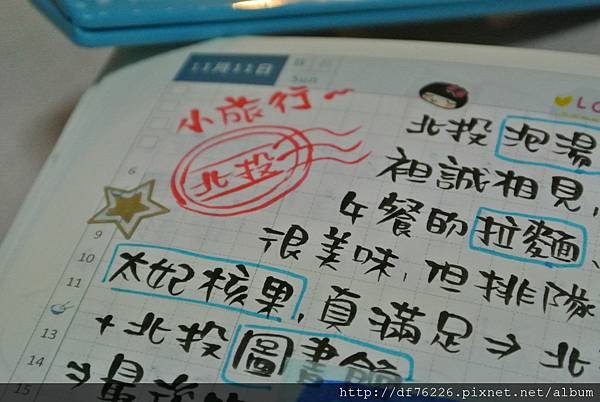 11月11日
Sun
小旅行~
北投
♥LO
北投泡湯
袒誠相見,
午餐的拉麵、
很美味,但排隊
太妃核果,真滿足⇒北
+北投圖書館
6
9
10
11
13
14
15
http://df76226.pixnet.net/album